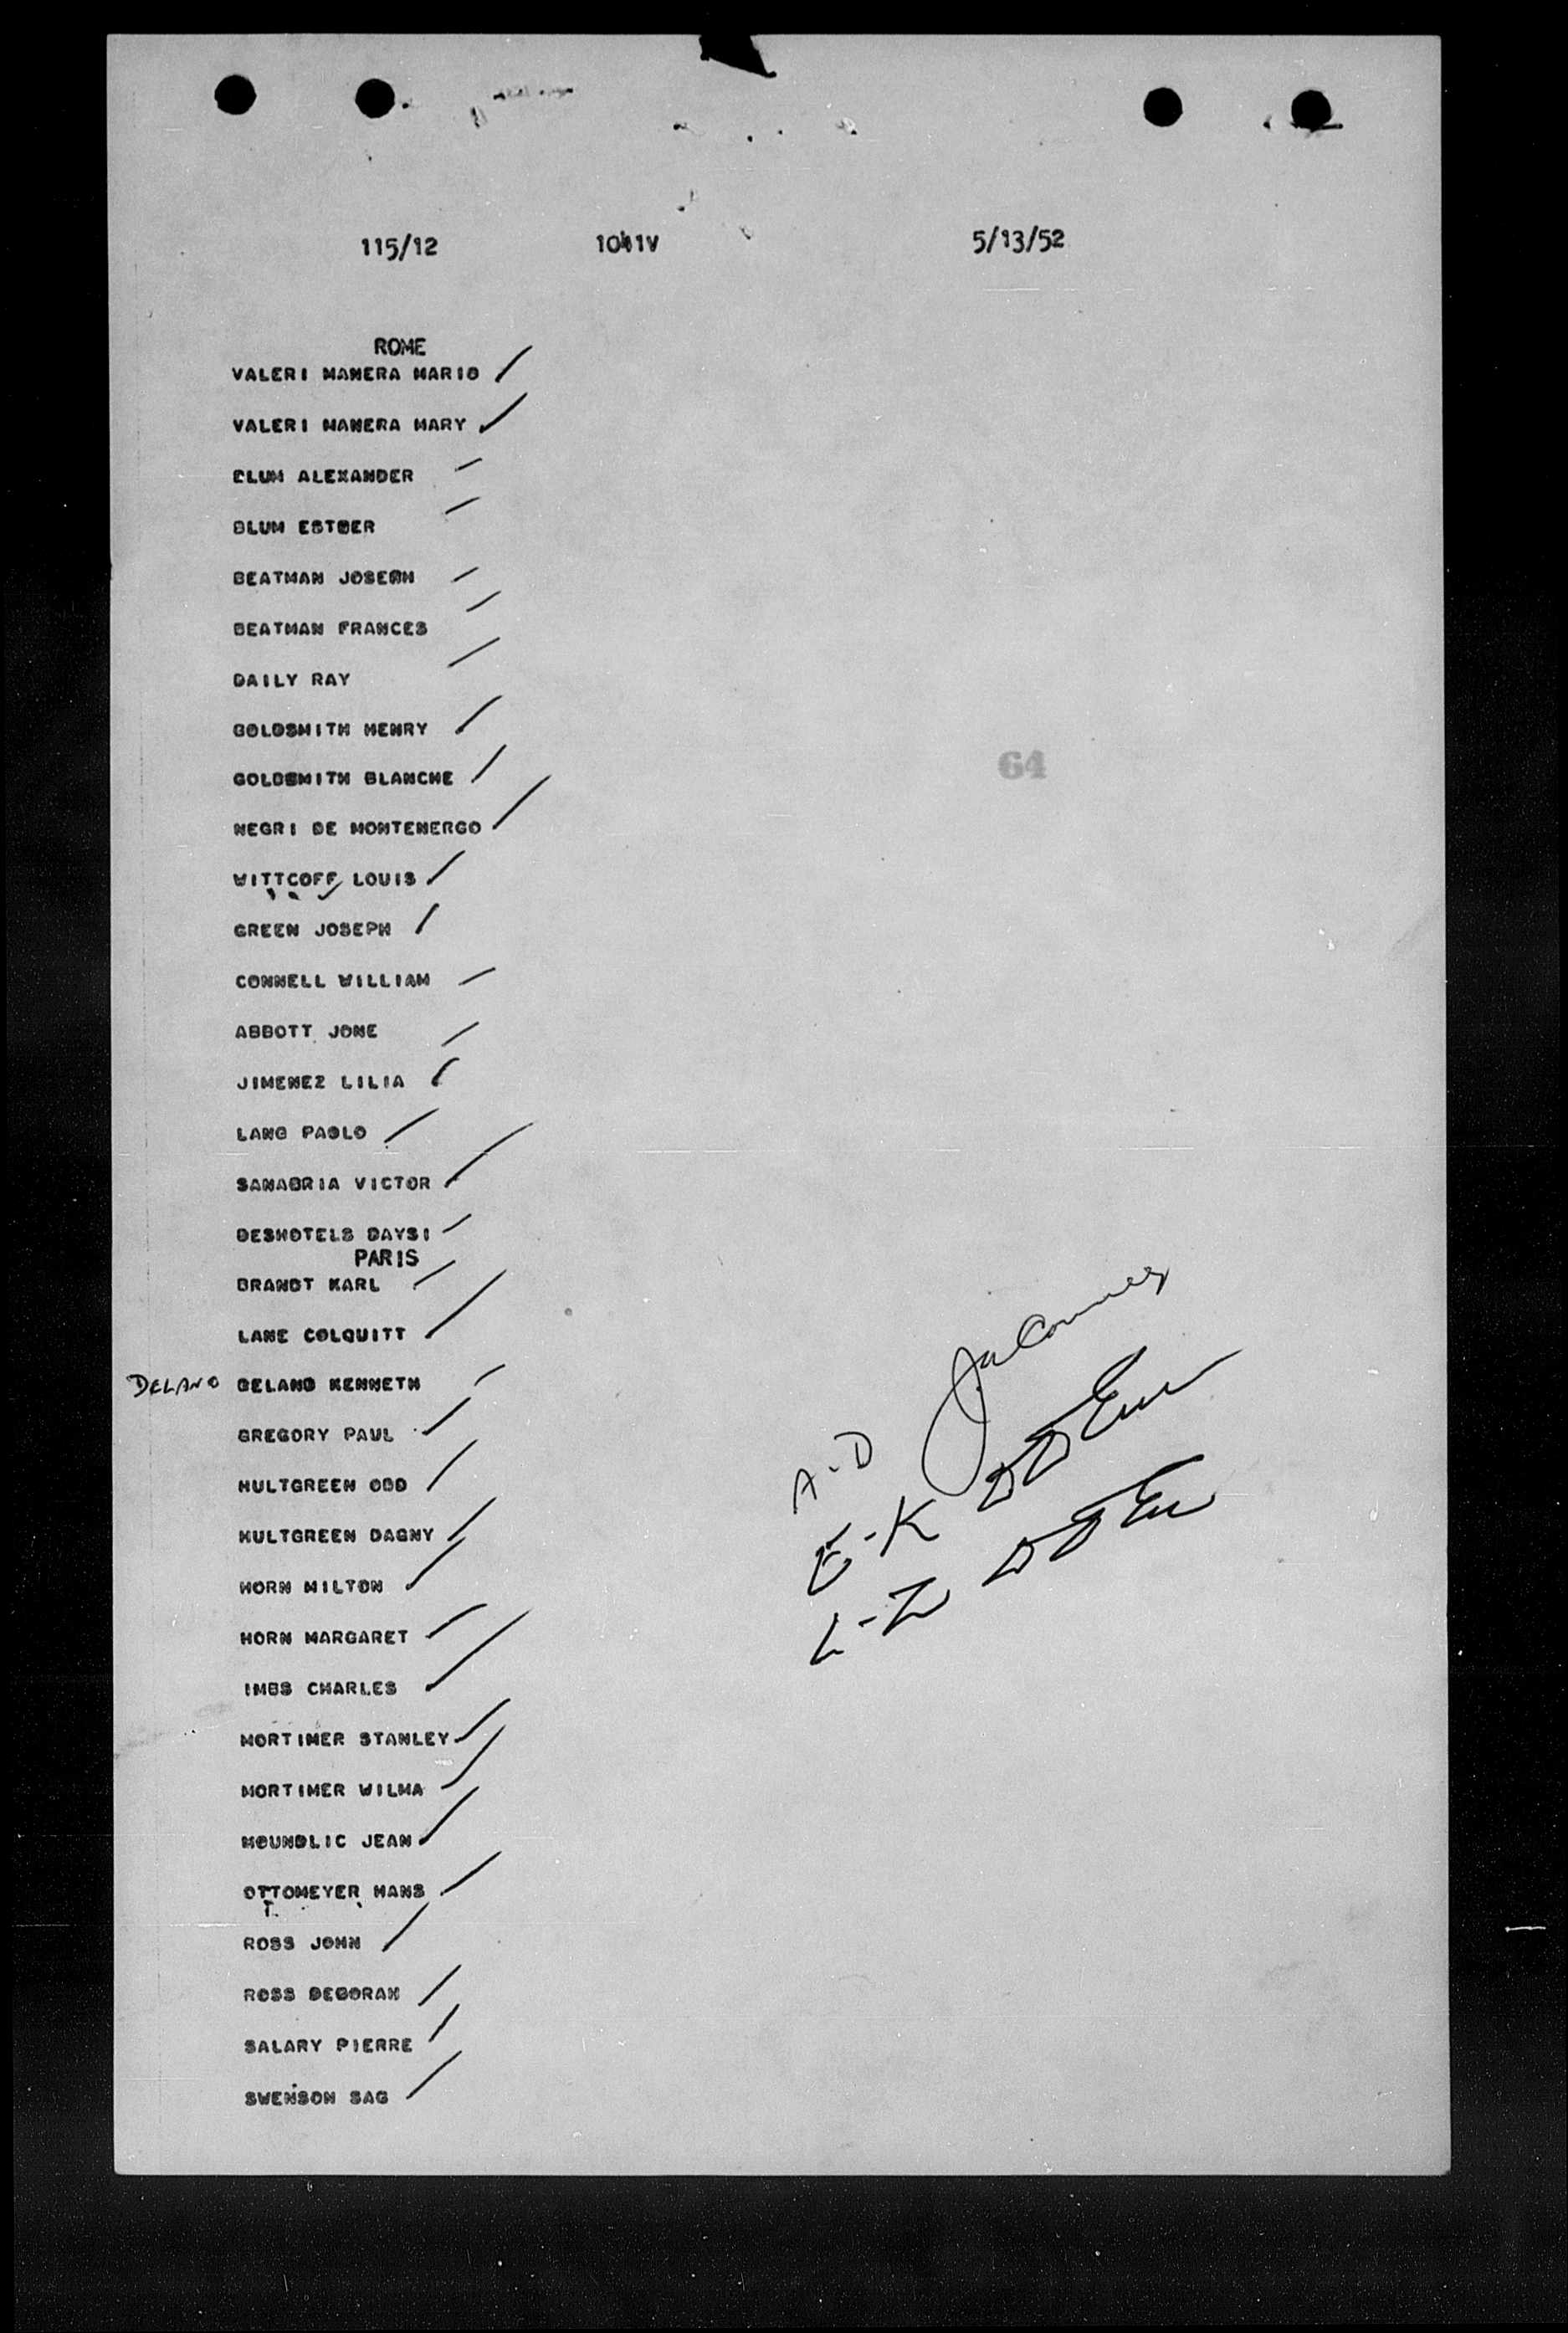 115/12 1041V 5/13/52
ROME
VALERI MANERA MARIO
VALERI MANERA MARY
BLUM ALEXANDER
BLUM ESTBER
BEATMAN JOSEPH
BEATMAN FRANCES
DAILY RAY
GOLDSMITH HENRY
GOLDSMITH BLANCHE
NEGRI DE MONTENERGO
WITTCOFF LOUIS
GREEN JOSEPH
CONNELL WILLIAM
ABBOTT JONE
JIMENEZ LILIA
LANG PAOLO
SANABRIA VICTOR
DESHOTELS DAYSI
PARIS
BRANDT KARL
LANE COLQUITT
DELANO DELANO KENNETH
GREGORY PAUL
HULTGREEN ODD
HULTGREEN DAGNY
HORN MILTON
HORN MARGARET
IMBS CHARLES
MORTIMER STANLEY
MORTIMER WILMA
MOUNDLIC JEAN
OTTOMEYER HANS
T
ROSS JOHN
ROSS DEBORAH
SALARY PIERRE
SWENSON SAG
64
A-D
E-K
L-Z